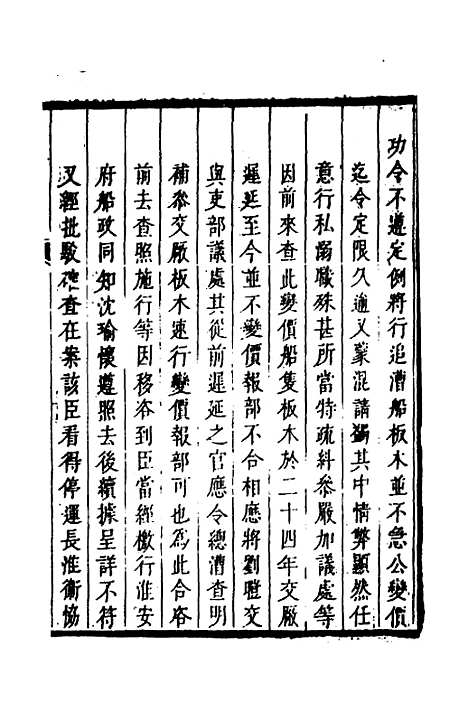 功令不遵定例將行追漕船板木並不急公變價
迄今定限久逾又蒙混請豁其中情弊顯然任
意行私溺職殊甚所當特疏糾參嚴加議處等
因前來查此變價船隻板木於二十四年交厰
遲延至今並不變價報部不合相應將劉暟交
與吏部議處其從前遲延之官應令總漕查明
補參交厰板木速行變價報部可也為此合咨
前去查照施行等因移咨到臣當經檄行淮安
府船政同知沈瑜懷遵照去後續據呈詳不符
又經批駁確查在案該臣看得停運長淮衛協